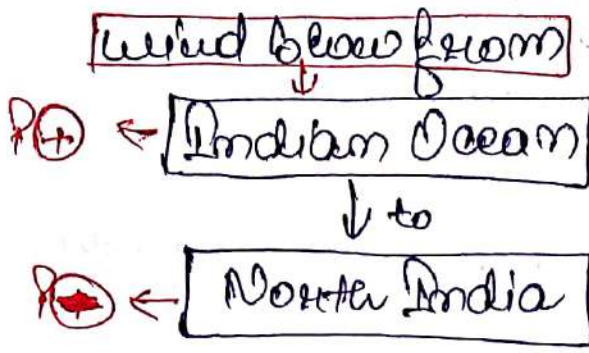 wind blow from
P+ ← Indian Ocean
↓ to
← North India